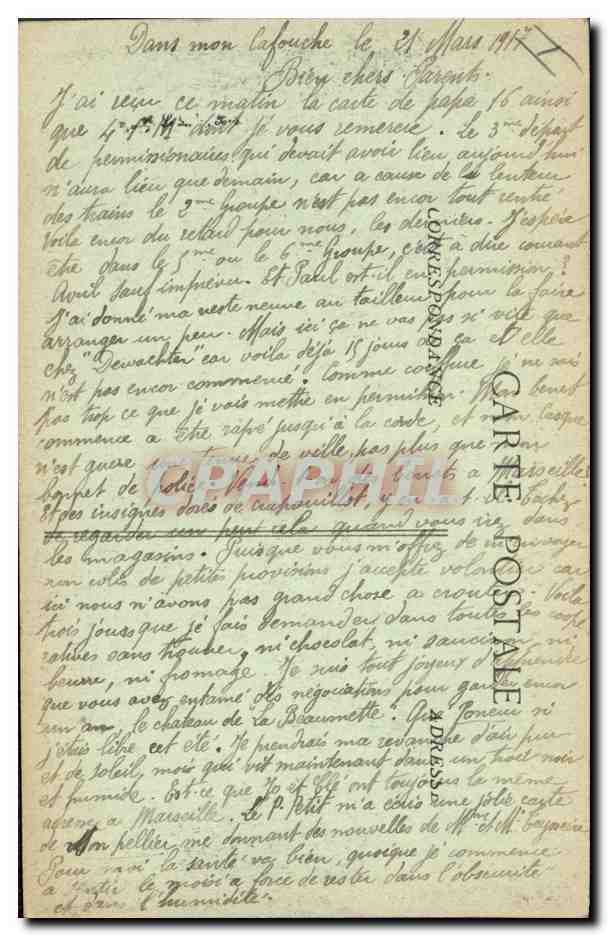 Dans mon cafouche le 21 Mars 1917
Bien chers Parents.
J'ai reçu ce matin la carte de papa 16 ainsi
que dont je vous remercie. Le 3me départ
de permissionaires qui devait avoir lieu aujourd'hui
n'aura lieu que demain, car a cause de la lenteur
des trains le 2me Groupe n'est pas encor tout rentré
Voila encor du retard pour nous, les derniers. J'espère
être dans le 5me ou le 6me Groupe, c'est à dire courant
Avril sauf imprévu. Et Paul est il en permission?
J'ai donné ma veste neuve au tailleur pour la faire
arranger un peu. Mais ici ça ne vas pas si vite que
chez "Dewachter" car voila déjà 15 jours de ça et elle
n'est pas encor commencé. Comme coiffure je ne sais
pas trop ce que je vais mettre en permission. Mon beret
commence a être rapé jusqu'à la corde, et mon casque
n'est guere de ville, pas plus que mon
bonnet de police. a Marseille
Et des insignes dorés de crapouillot, y en a t il. Tachez
de regarder un peu cela quand vous irez dans
les magasins. Puisque vous m'offrez de m'envoyer
un colis de petites provisions j'accepte volontier car
ici nous n'avons pas grand chose a croûter. Voila
trois jours que je fais demander dans toutes les coopé
ratives sans trouver, ni chocolat, ni saucisson, ni
beurre, ni fromage. Je suis tout joyeux d'apprendre
que vous avez entamé des négociations pour garder encor
un an le chateau de "La Beaumette". Quel bonheur si
j'étais libre cet été. Je prendrais ma revanche d'air pur
et de soleil, moi qui vit maintenant dans un trou noir
et humide. Est-ce que Jo et Cló ont toujours la même
a Marseille. Le P. Petit m'a écris une jolie carte
de Mon pellier me donnant des nouvelles de Mme et Mr
Pour moi la santé va bien, quoique je commence
a sentir le moisi a force de rester dans l'obscurité
et dans l'humidité.
CORRESPONDANCE
CARTE POSTALE
ADRESSE
CPAPHIL